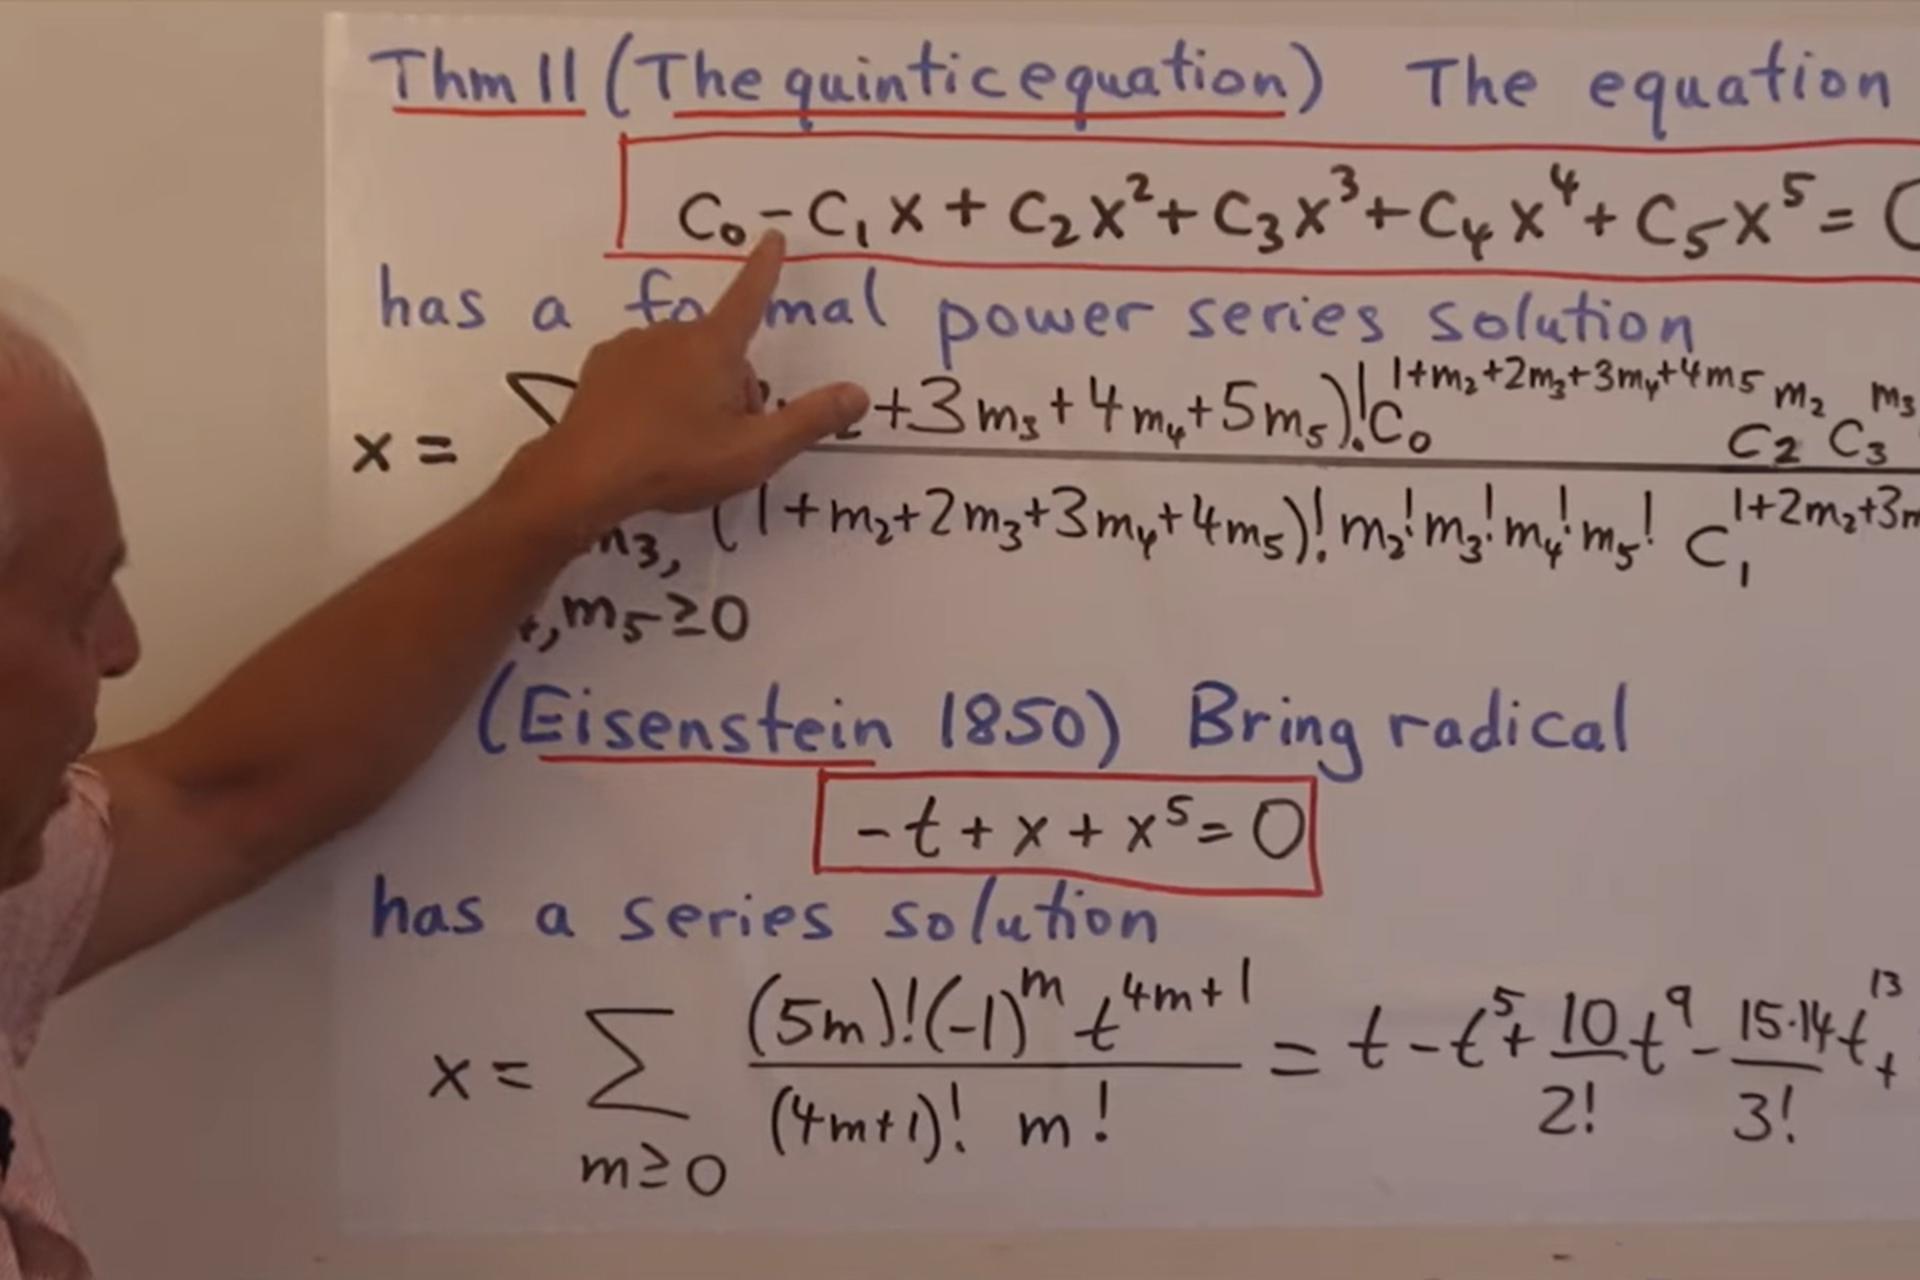 Thm 11 (The quintic equation) The equation
C₀ - C₁x + C₂x² + C₃x³ + C₄x⁴ + C₅x⁵ =
has a formal power series solution
x = ∑ +3m₃+4m₄+5m₅)! C₀^(1+m₂+2m₃+3m₄+4m₅) C₂^m₂ C₃^m₃
m₃, (1+m₂+2m₃+3m₄+4m₅)! m₂! m₃! m₄! m₅! C₁^(1+2m₂+3m
, m₅ ≥ 0
(Eisenstein 1850) Bring radical
-t + x + x⁵ = 0
has a series solution
x = ∑ (5m)! (-1)^m t^(4m+1) = t - t⁵ + 10/2! t⁹ - 15·14/3! t¹³ +
m ≥ 0 (4m+1)! m!